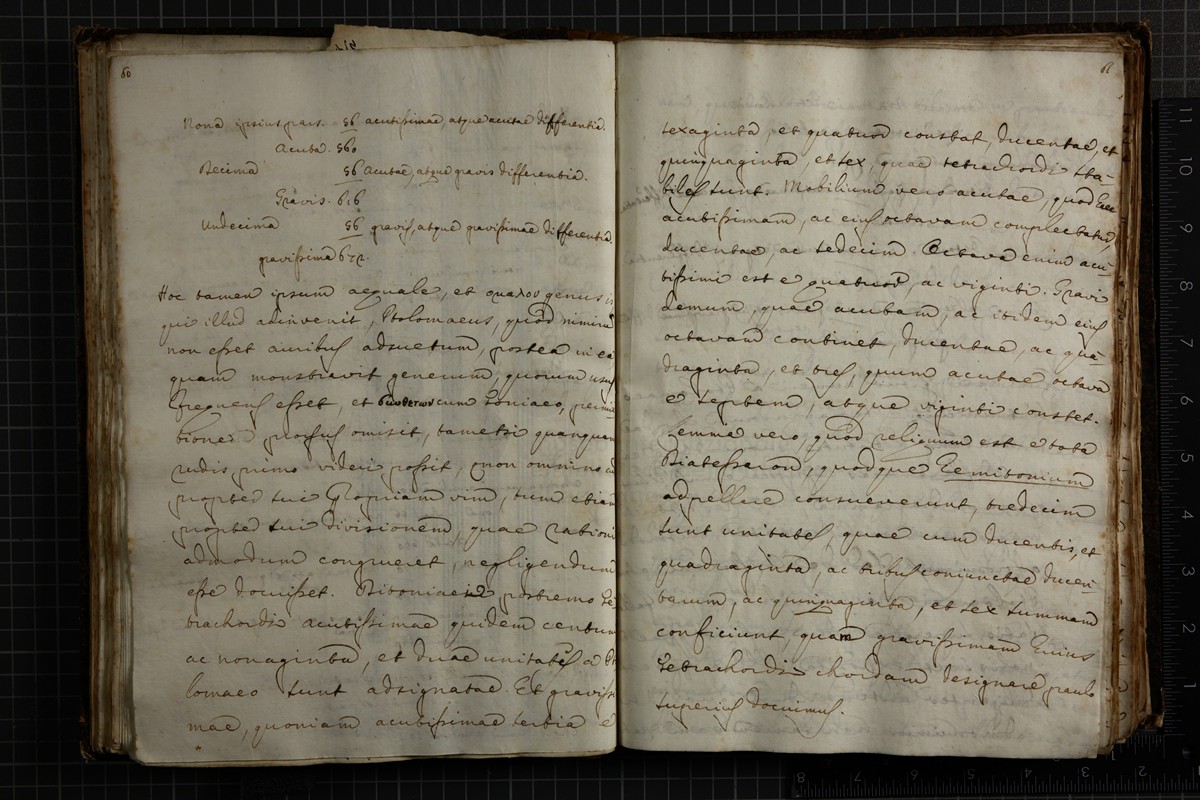 60
Nona ipsius pars. 56 acutissimae, atque acutae differentia.
Acuta. 560
Decima 56 acutae, atque gravis differentia.
Gravis. 616
Undecima 56 gravis, atque gravissimae differentia.
gravissima 672.
Hoc tamen ipsum aequale, et ὁμαλον genus is
qui illud adinvenit, Ptolomaeus, quod nimirum
non esset auribus adsuetum, postea in ea
quam monstravit generum, quorum usus
frequens esset, et cum Toniaeo,
prorsus omisit, tametsi quanquam
rudis primo videri possit, non omnino
propter sui propriam vim, tum etiam
propter sui divisionem, quae rationi
admodum congrueret, negligendum
esse docuisset. Ditoniaei postremo te
trachordi acutissimae quidem centum
ac nonaginta, et duae unitates a Pto
lomaeo sunt adsignatae. Et gravissi
mae, quoniam acutissimae tertia e
61
sexaginta, et quatuor constat, ducentae, et
quinquaginta, et sex, quae tetrachordi sta-
biles sunt. Mobilium vero acutae, quod
acutissimam, ac eius octavam complectatur
ducentae, ac sedecim. Octava enim acu
tissimi est e quatuor, ac viginti. Gravi
demum, quae acutam, ac itidem eius
octavam continet, ducentae, ac qua-
draginta, et tres, quum acutae octava
e septem, atque viginti constet.
Lemma vero, quod reliquum est e tota
Diatessaron, quodque Hemitonium
adpellare consueverunt, tredecim
sunt unitates, quae cum ducentis, et
quadraginta, ac tribus coniunctae ducen-
tarum, ac quinquaginta, et sex summam
conficiunt, quam gravissimam huius
tetrachordi chordam designare paulo
superius docuimus.